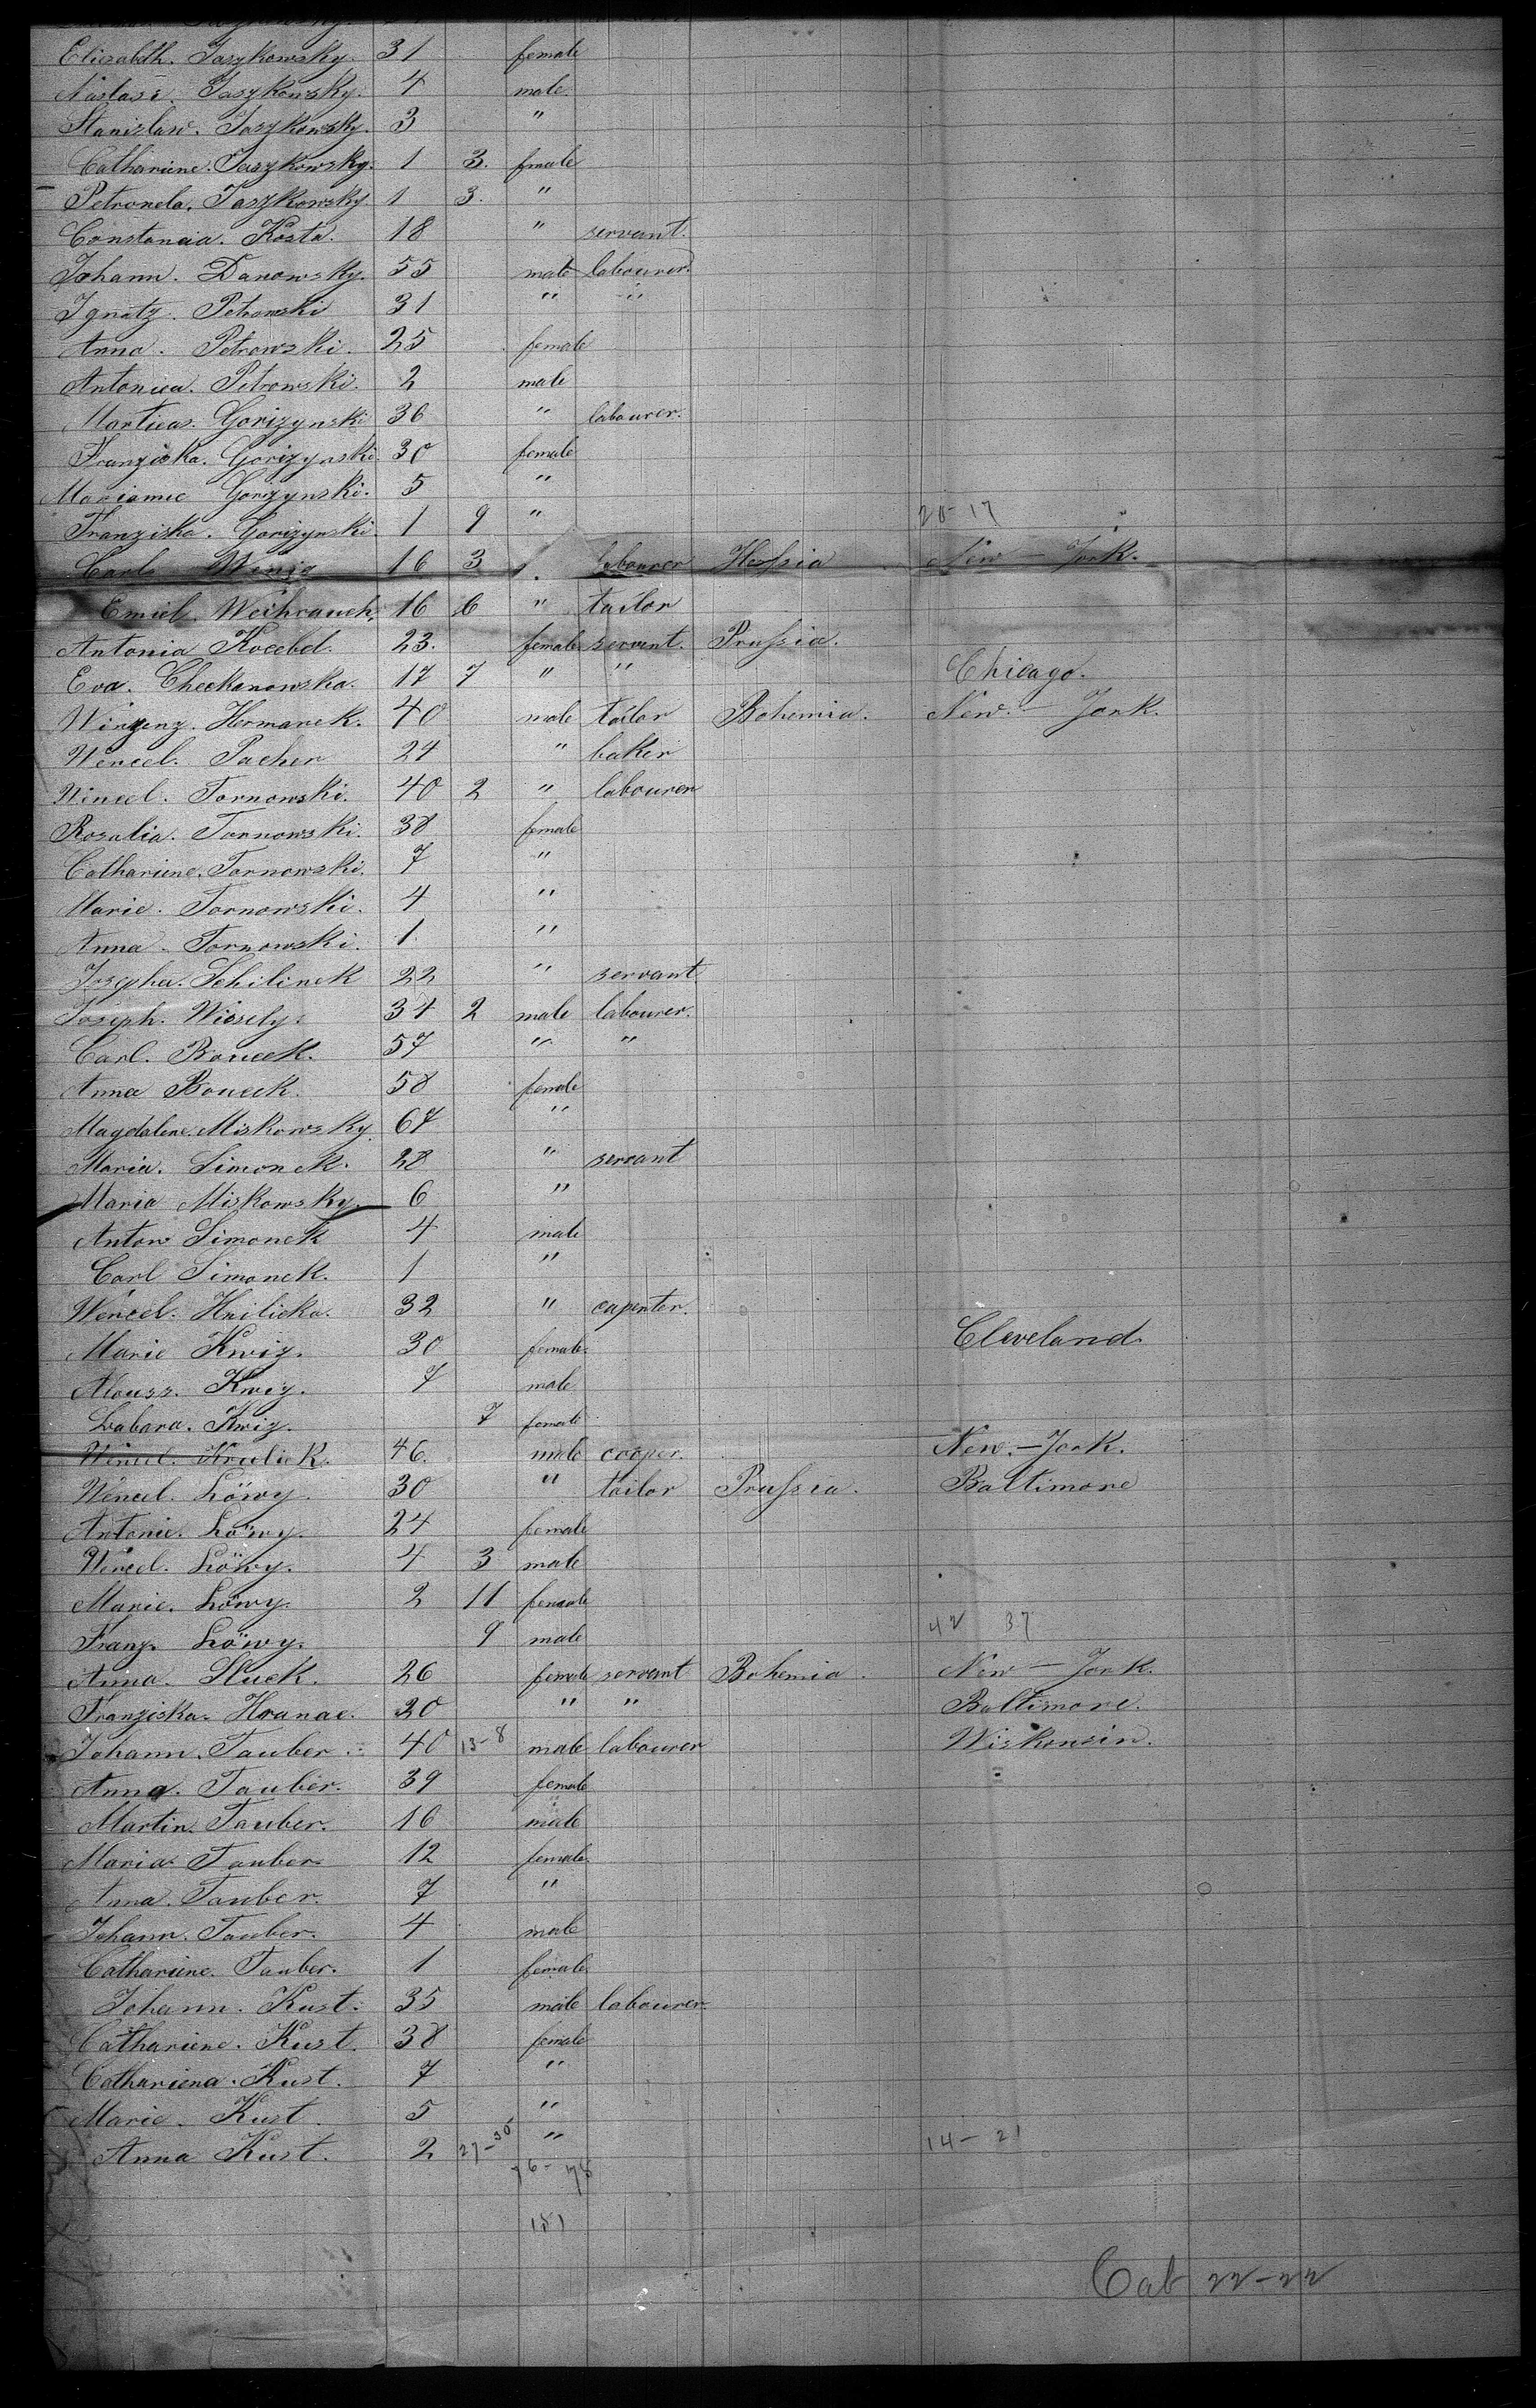 Eliesabeth. Jaszkowsky. 31 female
Nastasi. Jaszkowsky. 4 male.
Stanislaw. Jaszkowsky. 3 "
Cathariene. Jaszkowsky. 1 3. female
Petronela. Jaszkowsky 1 3. "
Constancia. Kosta. 18 " servant.
Johann. Danowsky. 55 male labourer.
Ignatz. Petrowski 31 " "
Anna. Petrowski. 25 female
Antoniea. Petrowski. 2 male
Martieas. Gorizynski 36 " labourer.
Franziska. Gorizynski. 30 female
Mariamie Gorizynski. 5 "
Franziska. Gorizynski. 1 9 " 20-17
Carl Wenig 16 3 labourer Hessia New-York.
Emiel. Weihrauch. 16 6 " tailor
Antonia Kocebd. 23. female servant. Prussia.
Eva. Checkanowska. 17 7 " " Chicago.
Winzenz. Hermanek. 40 male tailor Bohemia. New-York.
Wencel. Pacher 24 " baker
Wincel. Tornowski. 40 2 " labourer
Rosalia. Tornowski. 38 female
Cathariene. Tornowski. 7 "
Marie. Tornowski. 4 "
Anna. Tornowski. 1. "
Josepha. Schilinek 22 " servant.
Joseph. Wiesely. 34 2 male labourer.
Carl. Boucek. 57 " "
Anna Boucek. 58 female
Magdalene. Miskowsky. 67 "
Maria. Simonek. 28 " servant
Maria Miskowsky. 6 "
Anton Simonek 4 male
Carl Simonek. 1 "
Wencel. Hnilicka. 32 " capenter.
Marie Kwiz. 30 female. Cleveland.
Alouss. Kwiz. 7 male
Babara. Kwiz. 7 female
Wencel. Krulick. 46. male cooper. New-York.
Wencel. Löwy. 30 " tailor Prussia. Baltimore
Antonie. Löwy. 24 female
Wencel. Löwy. 4 3 male
Marie. Löwy. 2 11 female
Franz. Löwy. 9 male 42 37
Anna. Stuck. 26 female servant Bohemia. New-York.
Franziska. Hranac. 20 " " Baltimore.
Johann. Tauber. 40 13-8 male labourer Wiskonsin.
Anna. Tauber. 39 female
Martin. Tauber. 16 male
Maria Tauber 12 female
Anna. Tauber. 7 "
Johann. Tauber. 4 male
Cathariene. Tauber. 1 female
Johann. Kust. 35 male labourer.
Cathariene. Kust. 38 female
Cathariena. Kust. 7 "
Marie. Kust. 5 "
Anna Kust. 2 27-30 " 14-21
76-75
151
Cab 22-22